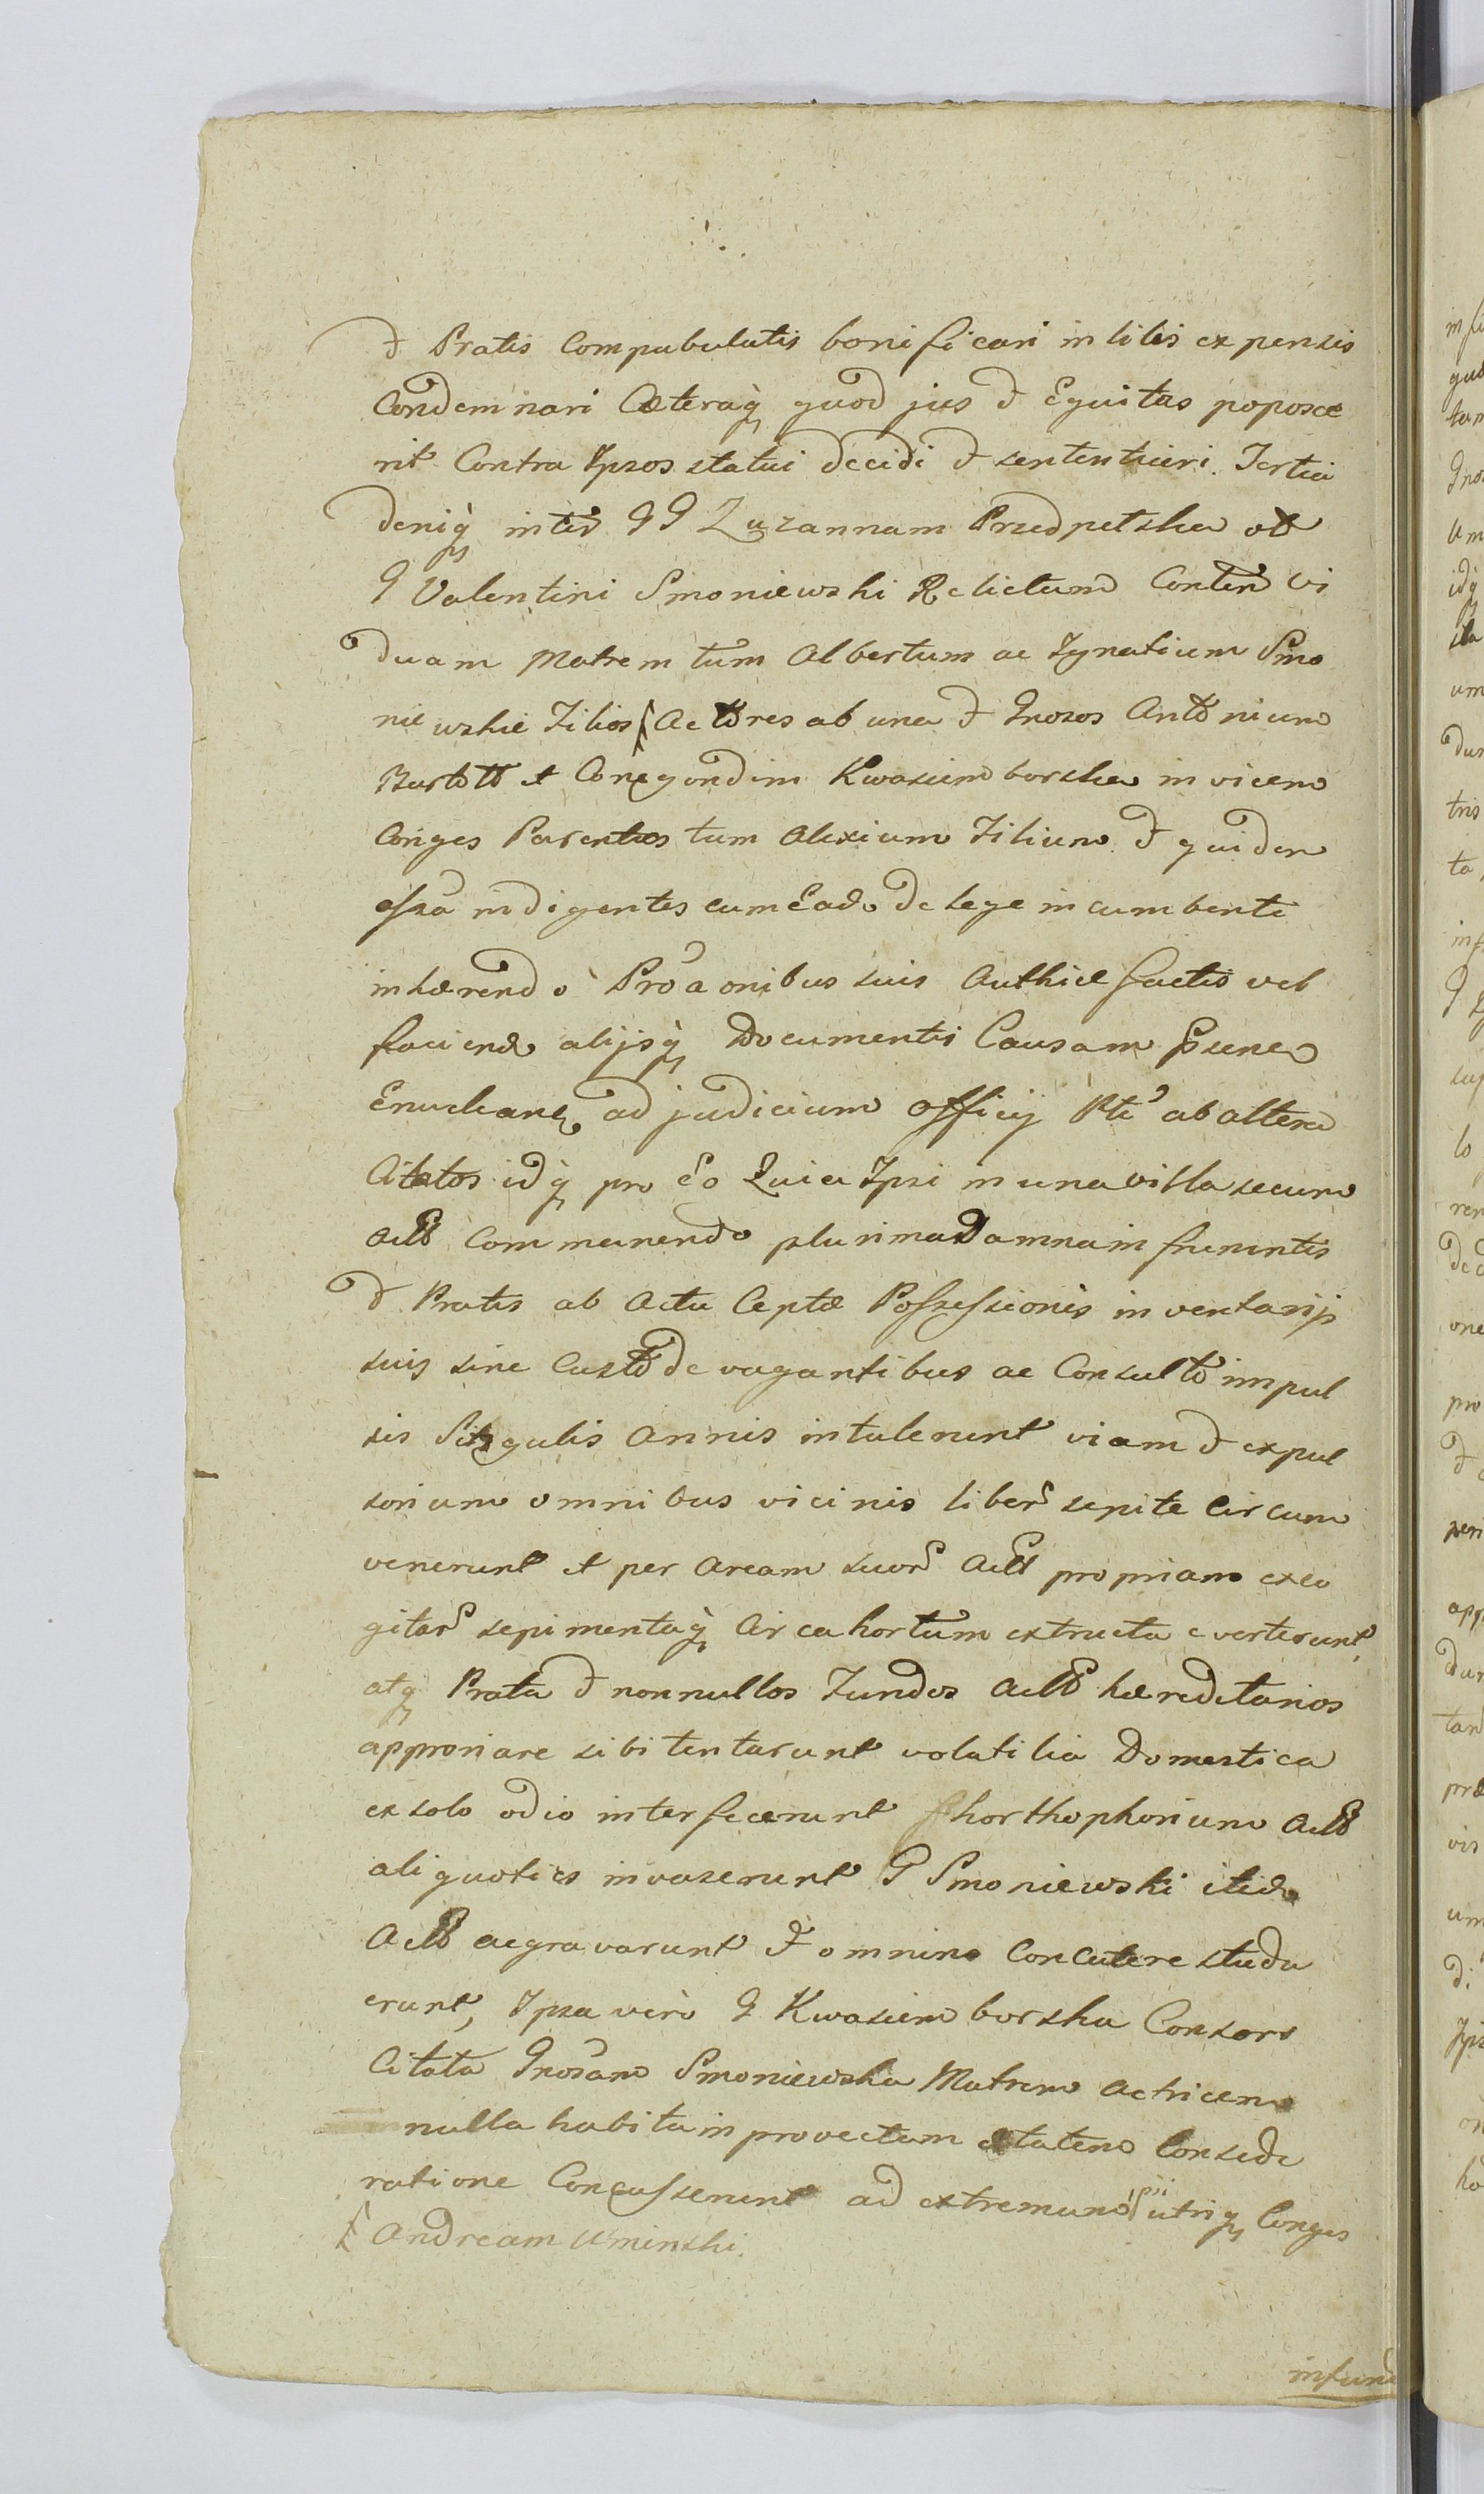 et Pratis Compabulatis bonificari in litis expensis
Condemnari Caeteraq quod jus et Equitas poposce
rit Contra Ipsos statui decidi et sententiari. Tertia
deniq inter GG Zuzannam Przedpelska ol
G Valentini Smoniewski Relictam Conten vi
duam Matrem tum Albertum ac Ignatium Smo
niewskie Filios Actores ab una et Gnosos Antonium
Burbott et Conegondim Kwasiemborska invicem
Conges Parentes tum Alexium Filium et quidem
assa indigentes cum Eado de lege incumbente
inhaerendo Pro'aonibus suis Authice factis vel
faciend alijsq Documentis Causam
Enucleane ad judicium officij Pti' ab altera
Citatos idq pro Eo Quia Ipsi in una villa secum
Actt Commanendo plurima Damna in frumentis
et Pratis ab Actu Ceptae Possessionis inventarijs
suis sine Custode vagantibus ac Consulto impul
sis Singulis annis intulerunt viam et expul
sorium omnibus vicinis liber sepite Circum
venerunt et per Aream suor Actt propriam exco
gitar sepimentaq Circa hortum extructa everterunt
atq Prata et nonnullos Fundos Actt haereditarios
approriare sibi tentarunt volatilia Domestica
ex solo odio interfecerunt horthophorium Actt
aliquoties invaserunt G Smoniewski
Actt aegravarunt et omnino Concutere studu
erunt, Ipsa vero G Kwasiemborska Consors
Citata Gnosam Smoniewska Matrem actricem
nulla habita in provectam aetatem Conside
ratione Concusserunt ad extremum psii utriq Conges
Andream Uminski.
infund